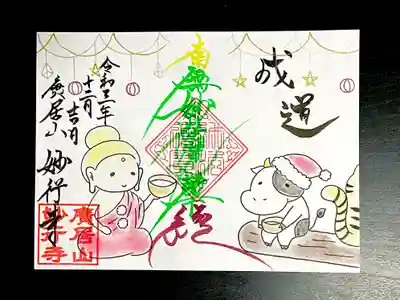 成道
南無妙法蓮華経
令和三年
十二月吉日
廣居山 妙行寺
廣居山
妙行寺